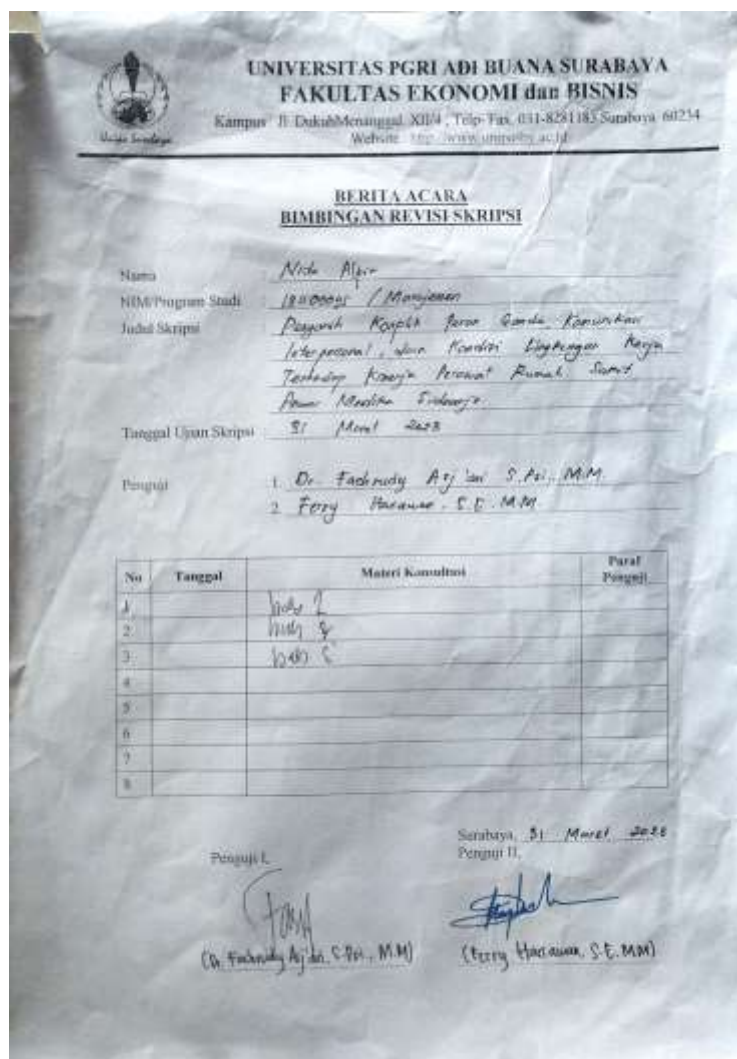 UNIVERSITAS PGRI ADI BUANA SURABAYA
FAKULTAS EKONOMI dan BISNIS
Kampus : Jl. DukuhMenanggal XII/4 , Telp-Fax. 031-8281183 Surabaya 60234
Website : http://www.unipasby.ac.id
Unipa Surabaya
BERITA ACARA
BIMBINGAN REVISI SKRIPSI
Nama : Nida
NIM/Program Studi : / Manajemen
Judul Skripsi : Pengaruh Konflik Peran Ganda, Komunikasi
Interpersonal, dan Kondisi Lingkungan Kerja
Terhadap Kinerja Perawat Rumah
Sidoarjo.
Tanggal Ujian Skripsi : 31 Maret 2023
Penguji : 1. Dr. Fachrudy Asj'ari S.Psi., M.M.
2. Ferry Hariawan, S.E. M.M
No Tanggal Materi Konsultasi Paraf Penguji
1
2
3 bab 5
4
5
6
7
8
Surabaya, 31 Maret 2023
Penguji I, Penguji II,
(Dr. Fachrudy Asj'ari, S.Psi., M.M) (Ferry Hariawan, S.E. M.M)